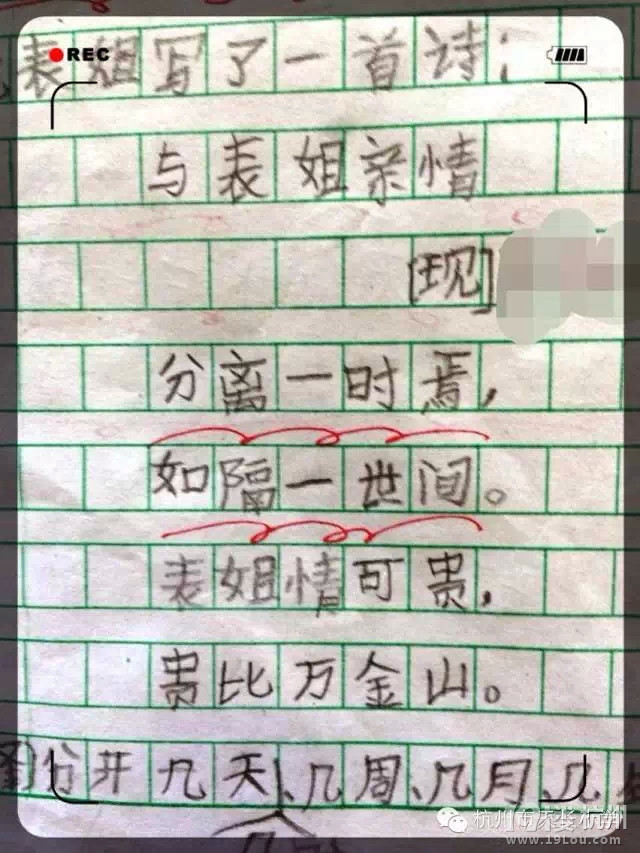 REC
表姐写了一首诗：
与表姐亲情
[现]
分离一时焉，
如隔一世间。
表姐情可贵，
贵比万金山。
分开几天、几周、几月、几
www.19lou.com